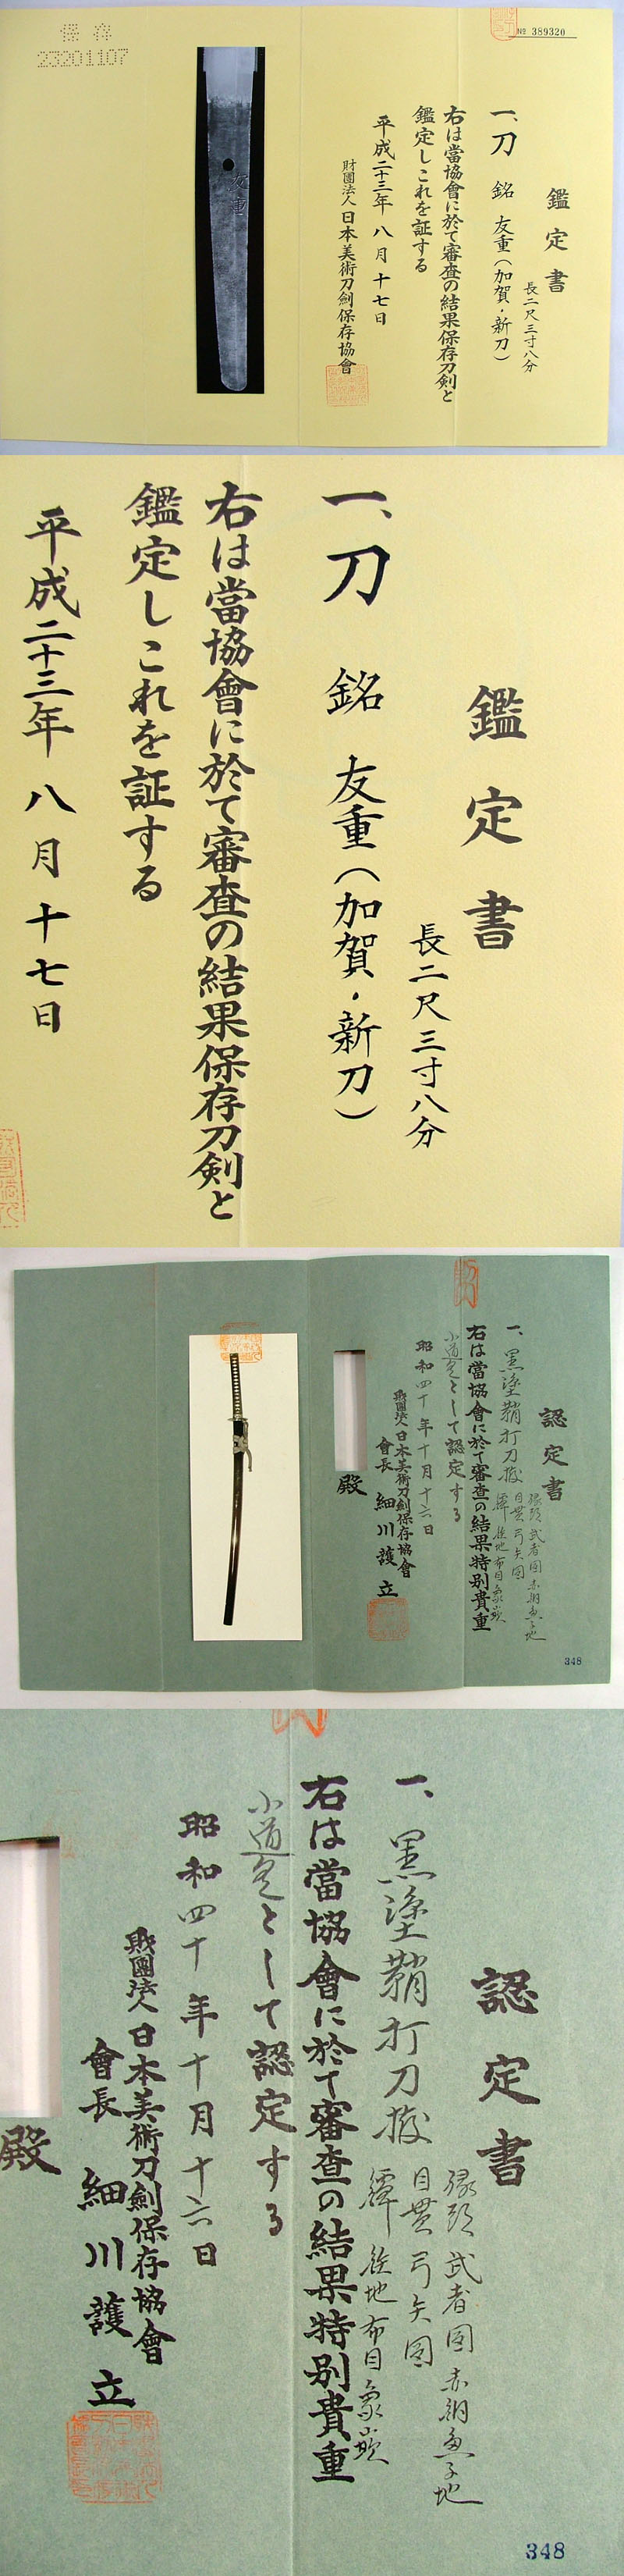 保存
23201107
№ 389320
鑑定書
長二尺三寸八分
一、刀 銘 友重(加賀・新刀)
右は當協會に於て審査の結果保存刀剣と
鑑定しこれを証する
平成二十三年 八月 十七日
財團法人 日本美術刀劍保存協會
友重
鑑定書
長二尺三寸八分
一、刀 銘 友重(加賀・新刀)
右は當協會に於て審査の結果保存刀剣と
鑑定しこれを証する
平成二十三年 八月 十七日
認定書
縁頭 武者図 赤銅魚子地
目貫 弓矢図
一、黒塗鞘打刀拵 鐔 鉄地布目象嵌
右は當協會に於て審査の結果特別貴重
小道具として認定する
昭和四十年十月十六日
財團法人 日本美術刀劍保存協會
會長 細川護立
殿
348
認定書
縁頭 武者図 赤銅魚子地
目貫 弓矢図
一、黒塗鞘打刀拵 鐔 鉄地布目象嵌
右は當協會に於て審査の結果特別貴重
小道具として認定する
昭和四十年十月十六日
財團法人 日本美術刀劍保存協會
會長 細川護立
殿
348